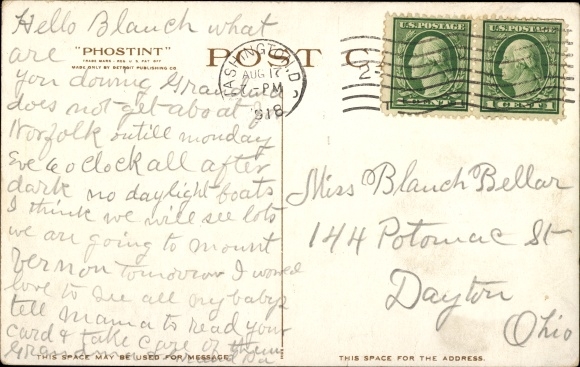 Hello Blanch what
are
you doing Grandpa
does not get a boat
Norfolk untill monday
Eve 6 o clock all after
dark no daylight boats
I think we will see lots
we are going to mount
vernon tomorrow I would
love to see all my babys
tell Mama to read your
card & take care of them
Grandma
"PHOSTINT"
TRADE MARK - REG. U.S. PAT. OFF.
MADE ONLY BY DETROIT PUBLISHING CO.
POST C
WASHINGTON, D
AUG 17
7-PM
1918
U.S.POSTAGE
1 CENT 1
U.S.POSTAGE
1 CENT 1
Miss Blanch Bellar
144 Potomac St
Dayton
Ohio
THIS SPACE MAY BE USED FOR MESSAGE.
THIS SPACE FOR THE ADDRESS.